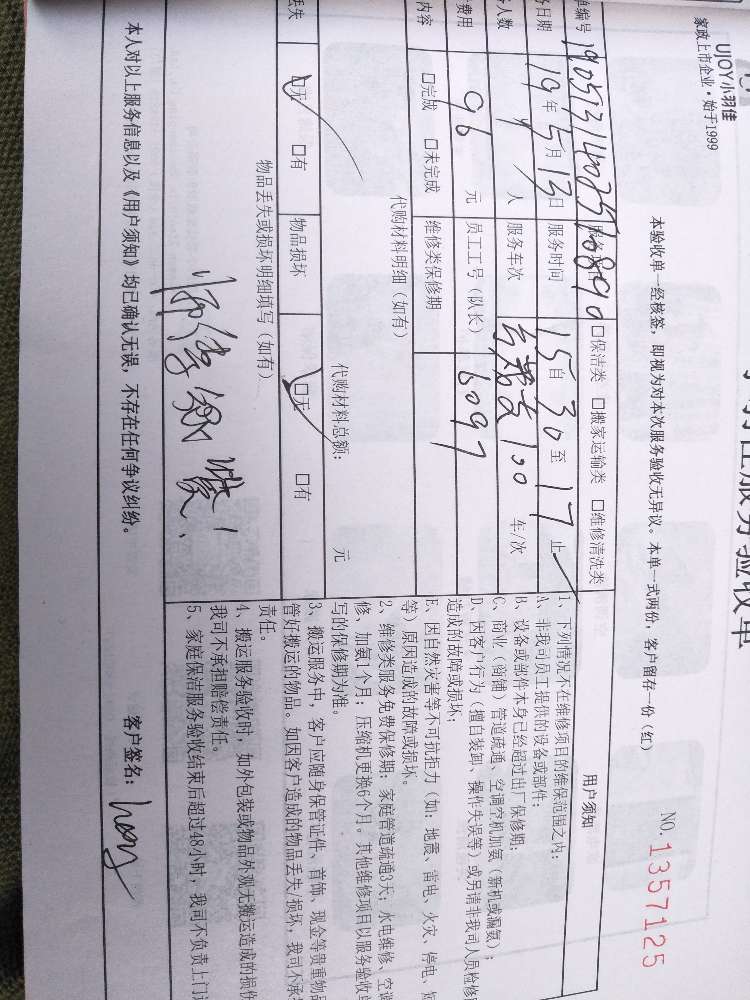 UJOY小羽佳
家政上市企业·始于1999
服务验收单
本验收单一经核签，即视为对本次服务验收无异议。本单一式两份，客户留存一份（红）
NO. 1357125
单编号
□保洁类 □搬家运输类 □维修清洗类
务日期 19年5月13日 服务时间 15自30至17止
务人数 人 服务车次 车/次
费用 96元 员工工号（队长） 6097
内容 □完成 □未完成 维修类保修期
代购材料明细（如有）
代购材料总额： 元
丢失 □无 □有 物品损坏 □无 □有
物品丢失或损坏明细填写（如有）
用户须知
1、下列情况不在维修项目的维保范围之内：
A、非我司员工提供的设备或部件；
B、设备或部件本身已经超过出厂保修期；
C、商业（商铺）管道疏通、空调空机加氨（新机或漏氨）；
D、因客户行为（擅自装卸、操作失误等）或另请非我司人员检修
造成的故障或损坏；
E、因自然灾害等不可抗拒力（如：地震、雷电、火灾、停电、短
等）原因造成的故障或损坏。
2、维修类服务免费保修期：家庭管道疏通3天；水电维修、空调
修、加氨1个月；压缩机更换6个月。其他维修项目以服务验收单
写的保修期为准。
3、搬运服务中，客户应随身保管证件、首饰、现金等贵重物品
管好搬运的物品。如因客户造成的物品丢失/损坏，我司不承
责任。
4、搬运服务验收时，如外包装或物品外观无搬运造成的损伤
我司不承担赔偿责任。
5、家庭保洁服务验收结束后超过48小时，我司不负责上门
本人对以上服务信息以及《用户须知》均已确认无误，不存在任何争议纠纷。 客户签名：